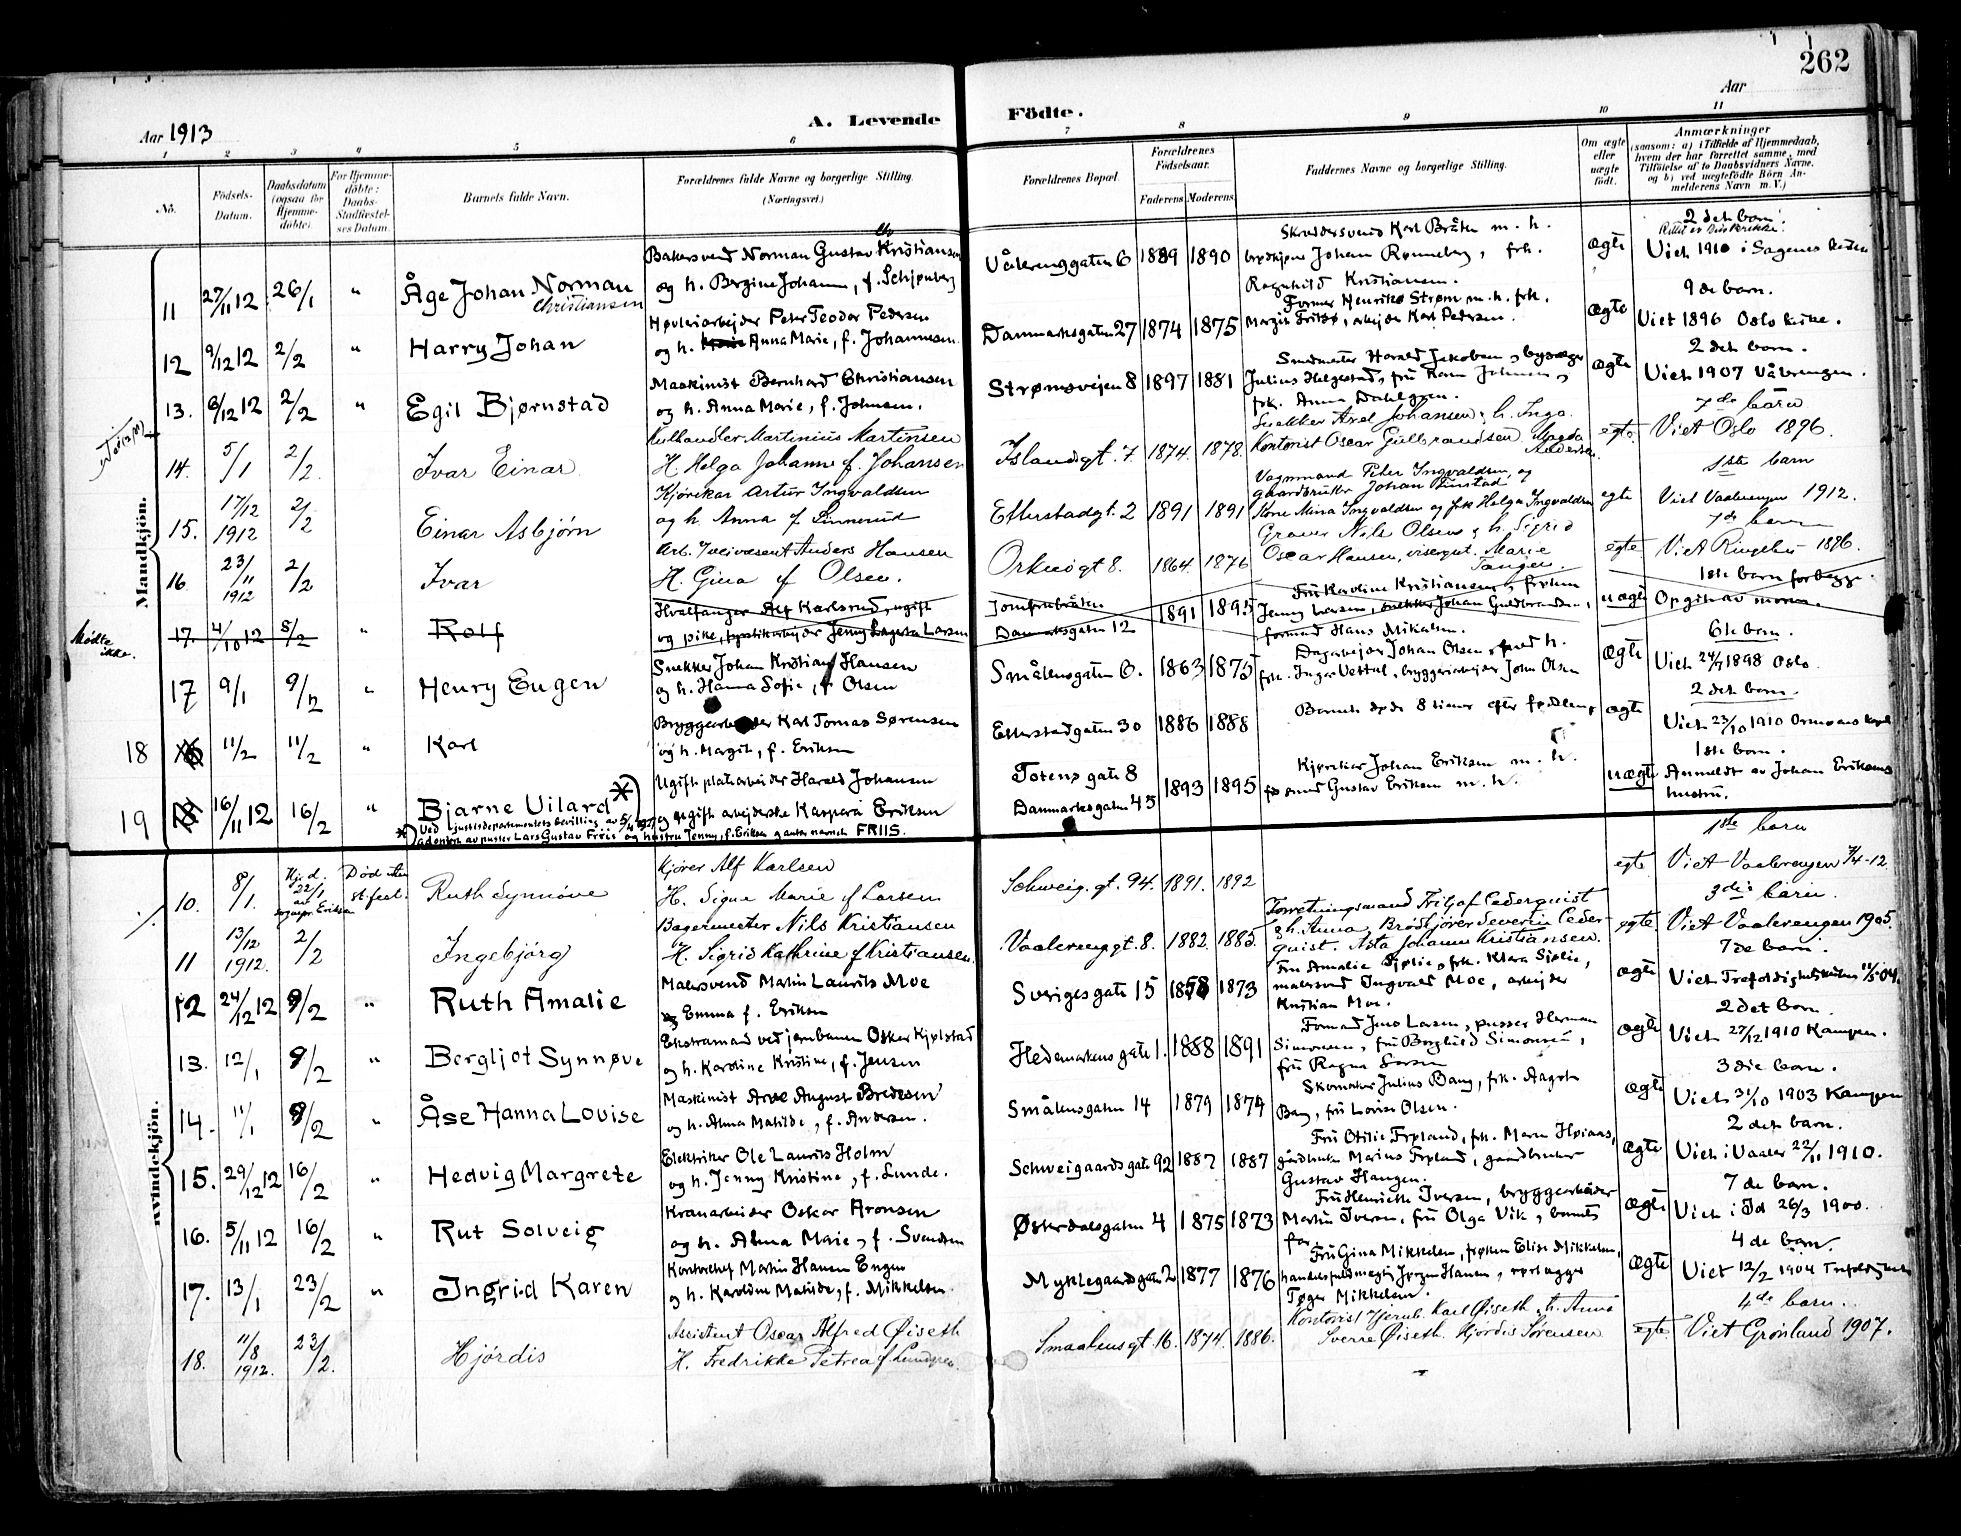 262
Aar
Aar 1913
A. Levende
Födte.
1 2 3 4 5 6 7 8 9 10 11
No.
Födsels-
Datum.
Daabsdatum
(ogsaa for
Hjemme-
döbte)
For Hjemme-
döbte:
Daabs-
Stadfæstel-
ses Datum.
Barnets fulde Navn.
Forældrenes fulde Navne og borgerlige Stilling.
(Næringsvei.)
Forældrenes Bopæl.
Forældrenes
Födselsaar.
Faderens Moderens
Faddernes Navne og borgerlige Stilling.
Om ægte
eller
uægte
födt.
Anmærkninger
(saasom: a) i Tilfælde af Hjemmedaab,
hvem der har forrettet samme, med
Tilföielse af to Daabsvidners Navne.
og b) ved uægtefödte Börn An-
melderens Navn m. V.)
Mandkjön.
11 27/11 12 26/1 " Åge Johan Norman
Christiansen
Bakersvend Norman Gustav Kristiansen
og h. Bergine Johanne, f. Schjønberg
Vålerenggaten 6 1889 1890
Skreddersvend Karl Bråten m. h.
brødkjører Johan Rønneberg, frk.
Ragnhild Kristiansen.
ægte
2 det barn.
Viet 1910 i Sagenes kirke
12 9/12 12 2/2 " Harry Johan
Høvleriarbejder Peter Teodor Pedersen
og h. Anna Marie, f. Johannesen.
Danmarksgaten 27 1874 1875
Former Henriks Strøm m. h. frk.
Margit Fritsø, arbejder Karl Pedersen.
ægte
9 de barn.
Viet 1896 Oslo kirke.
13. 6/12 12 2/2 " Egil Bjørnstad
Maskinist Bernhard Christiansen
og h. Anna Marie, f. Johnsen.
Strømsvejen 8 1897 1881
Smedmester Harald Jakobsen, bygsæger
Julius Helgestad, frú Karen Johnsen,
frk. Anna Dahlgren.
ægte
2 det barn.
Viet 1907 Vålerengen.
14. 5/1 2/2. Ivar Einar
Kulhandler Martinius Martinsen
H. Helga Johanne f. Johansen
Islandsgt. 7. 1874. 1878.
Snekker Axel Johansen, h. Inga.
Kontorist Oscar Gulbrandsen. Magda
Andersen.
egte.
7 de barn
Viet Oslo 1896.
15. 17/12 1912 2/2 Einar Asbjörn
Kjørekar Artur Ingvaldsen
og h. Anna f. Linnerud
Etterstadgt. 2 1891 1891
Vognmand Peter Ingvaldsen, og
gaardbruker Johan Linstad
Kone Mina Ingvaldsen og frk Helga Ingvaldsen
egte
1ste barn
Viet Vaalerengen 1912.
16 23/11 1912 2/2 Ivar
Arb. Veivæsent Anders Hansen
H. Gina f Olsen.
Orknögt 8. 1864. 1876
Graver Nils Olsen & h. Sigrid
Oscar Hansen, visergut. Marie
Tangen.
egte
7 de barn
Viet Ringebu 1896.
Mødte
ikke.
17. 4/10 12 5/2 " Rolf
Hvalfanger Alf Karlsrud, ugift
og pike, fyrstikarbejder Jenny Lagusta Larsen
Jomfrubråten
Danmarksgaten 12 1891 1895
Frú Karoline Kristiansen, frøken
Jenny Larsen, snekker Johan Guldbrandsen,
formand Hans Mikalsen.
uægte
1ste barn for begge.
Opgit av moren.
17 9/1 9/2 " Henry Eugen
Snekker Johan Kristian Hansen
og h. Hanna Sofie, f. Olsen
Smålensgaten 6. 1863 1875
Dagarbejder Johan Olsen, smed h.
frk. Inga Vettal, bryggeriarbejder John Olsen
ægte
6te barn.
Viet 24/7 1898 Oslo.
18 11/2 11/2 " Karl
Bryggearbejder Karl Tomas Sørensen
og h. Margit, f. Eriksen
Etterstadgaten 30 1886 1888
Barnet døde 8 timer efter fødselen
ægte
2 det barn.
Viet 23/10 1910 Ormøens kapel
19 16/11 12 16/2 " Bjarne Vilard *)
Ugift platearbeider Harald Johansen
og ugift arbejderske Kaspara Eriksen
Totens gate 8
Danmarksgaten 43 1893 1895
Kjørekar Johan Eriksen m. h.
formand Gustav Eriksen m. h.
uægte
1ste barn.
Anmeldt av Johan Eriksens
hustru.
*) Ved justisdepartementets bevilling av 5/4 1927
adoptert av pusser Lars Gustav Friis og hustru Jenny, f. Eriksen g antar navnet FRIIS.
Kvindekjön.
10. 8/1. Hj. d. 22/1 av Eriksen
Död uten
st.fest. Ruth Synnöve
Kjörer Alf Karlsen
H. Signe Marie f Larsen
Schweig. gt. 94. 1891. 1892
egte
1ste barn
Viet Vaalerengen 7/4-12.
11 13/12 1912. 2/2 Ingebjörg
Bagermester Nils Kristiansen
H. Sigrid Kathrine f Kristiansen.
Vaalerenggt. 8. 1882. 1885.
Forretningsmand Fritjof Cederquist
& h. Anna. Brödkjörer Severin Ceder-
quist. Asta Johanne Kristiansen.
egte.
3die barn.
Viet Vaalerengen 1905.
12 24/12 12 9/2 " Ruth Amalie
Malersvend Martin Laurits Moe
og Emma f. Eriksen
Sveriges gate 15 1878 1873
Fru Amalie Sjølie, frk. Klara Sjølie,
malersvend Ingvald Moe, arbejder
Kristian Moe.
ægte
7 de barn.
Viet Trefoldighetskirken 11/5-04.
13. 12/1 9/2 " Bergljot Synnøve
Ekstramand ved jernbanen Oskar Kjølstad
og h. Karoline Kristine, f. Jensen
Hedemarkens gate 1. 1888 1891
Formand Jens Larsen, pusser Herman
Simonsen, frú Borghild Simonsen,
frú Ragna Larsen
ægte
2 det barn.
Viet 27/12 1910 Kampen.
14. 11/1 9/2 " Åse Hanna Lovise
Maskinist Arve August Bredesen
og h. Alma Matilde, f. Andersen.
Smålensgaten 14 1879 1879
Skomaker Julius Bang, frk. Aagot
Bang, frú Lovise Olsen.
ægte
3 die barn.
Viet 31/10 1903 Kampen
15. 29/12 12 16/2 " Hedvig Margrete
Elektriker Ole Laurits Holm
og h. Jenny Kristine, f. Lunde.
Schweigaardsgate 92 1887 1887
Frú Otilie Frøland, frk. Maren Høiaas,
gårdbruker Marius Frøland, gaardbruker
Gustav Haugen.
ægte
2 det barn.
Viet i Vaaler 22/11 1910.
16. 5/11 12 16/2 " Rut Solveig
Kranarbeider Oskar Aronsen
og h. Alma Marie, f. Svendsen
Østerdalsgaten 4 1875 1873
Frú Henriette Iversen, bryggearbeider
Martin Iversen, frú Olga Vik, barnets
far.
ægte
7 de barn.
Viet i Id 26/3 1900.
17. 13/1 23/2 " Ingrid Karen
Kontorchef Martin Hansen Engen
og h. Karoline Matilde, f. Mikkelsen.
Myklegaardsgaten 2 1877 1876
Frú Gina Mikkelsen, frøken Elise Mikkelsen,
handelsfuldmægtig Jørgen Hansen, rørlægger
Tøger Mikkelsen.
ægte
4 de barn.
Viet 12/2 1904 Trefoldighet
18. 11/8 1912. 23/2. Hjördis
Assistent Oscar Alfred Øiseth
H. Fredrikke Petrea f. Lundgren.
Smaalensgt. 16. 1874. 1886.
Kontorist Hjernb. Karl Øiseth, h. Anna
Sverre Øiseth. Hjördis Sörensen
egte
4de barn.
Viet Grönland 1907.